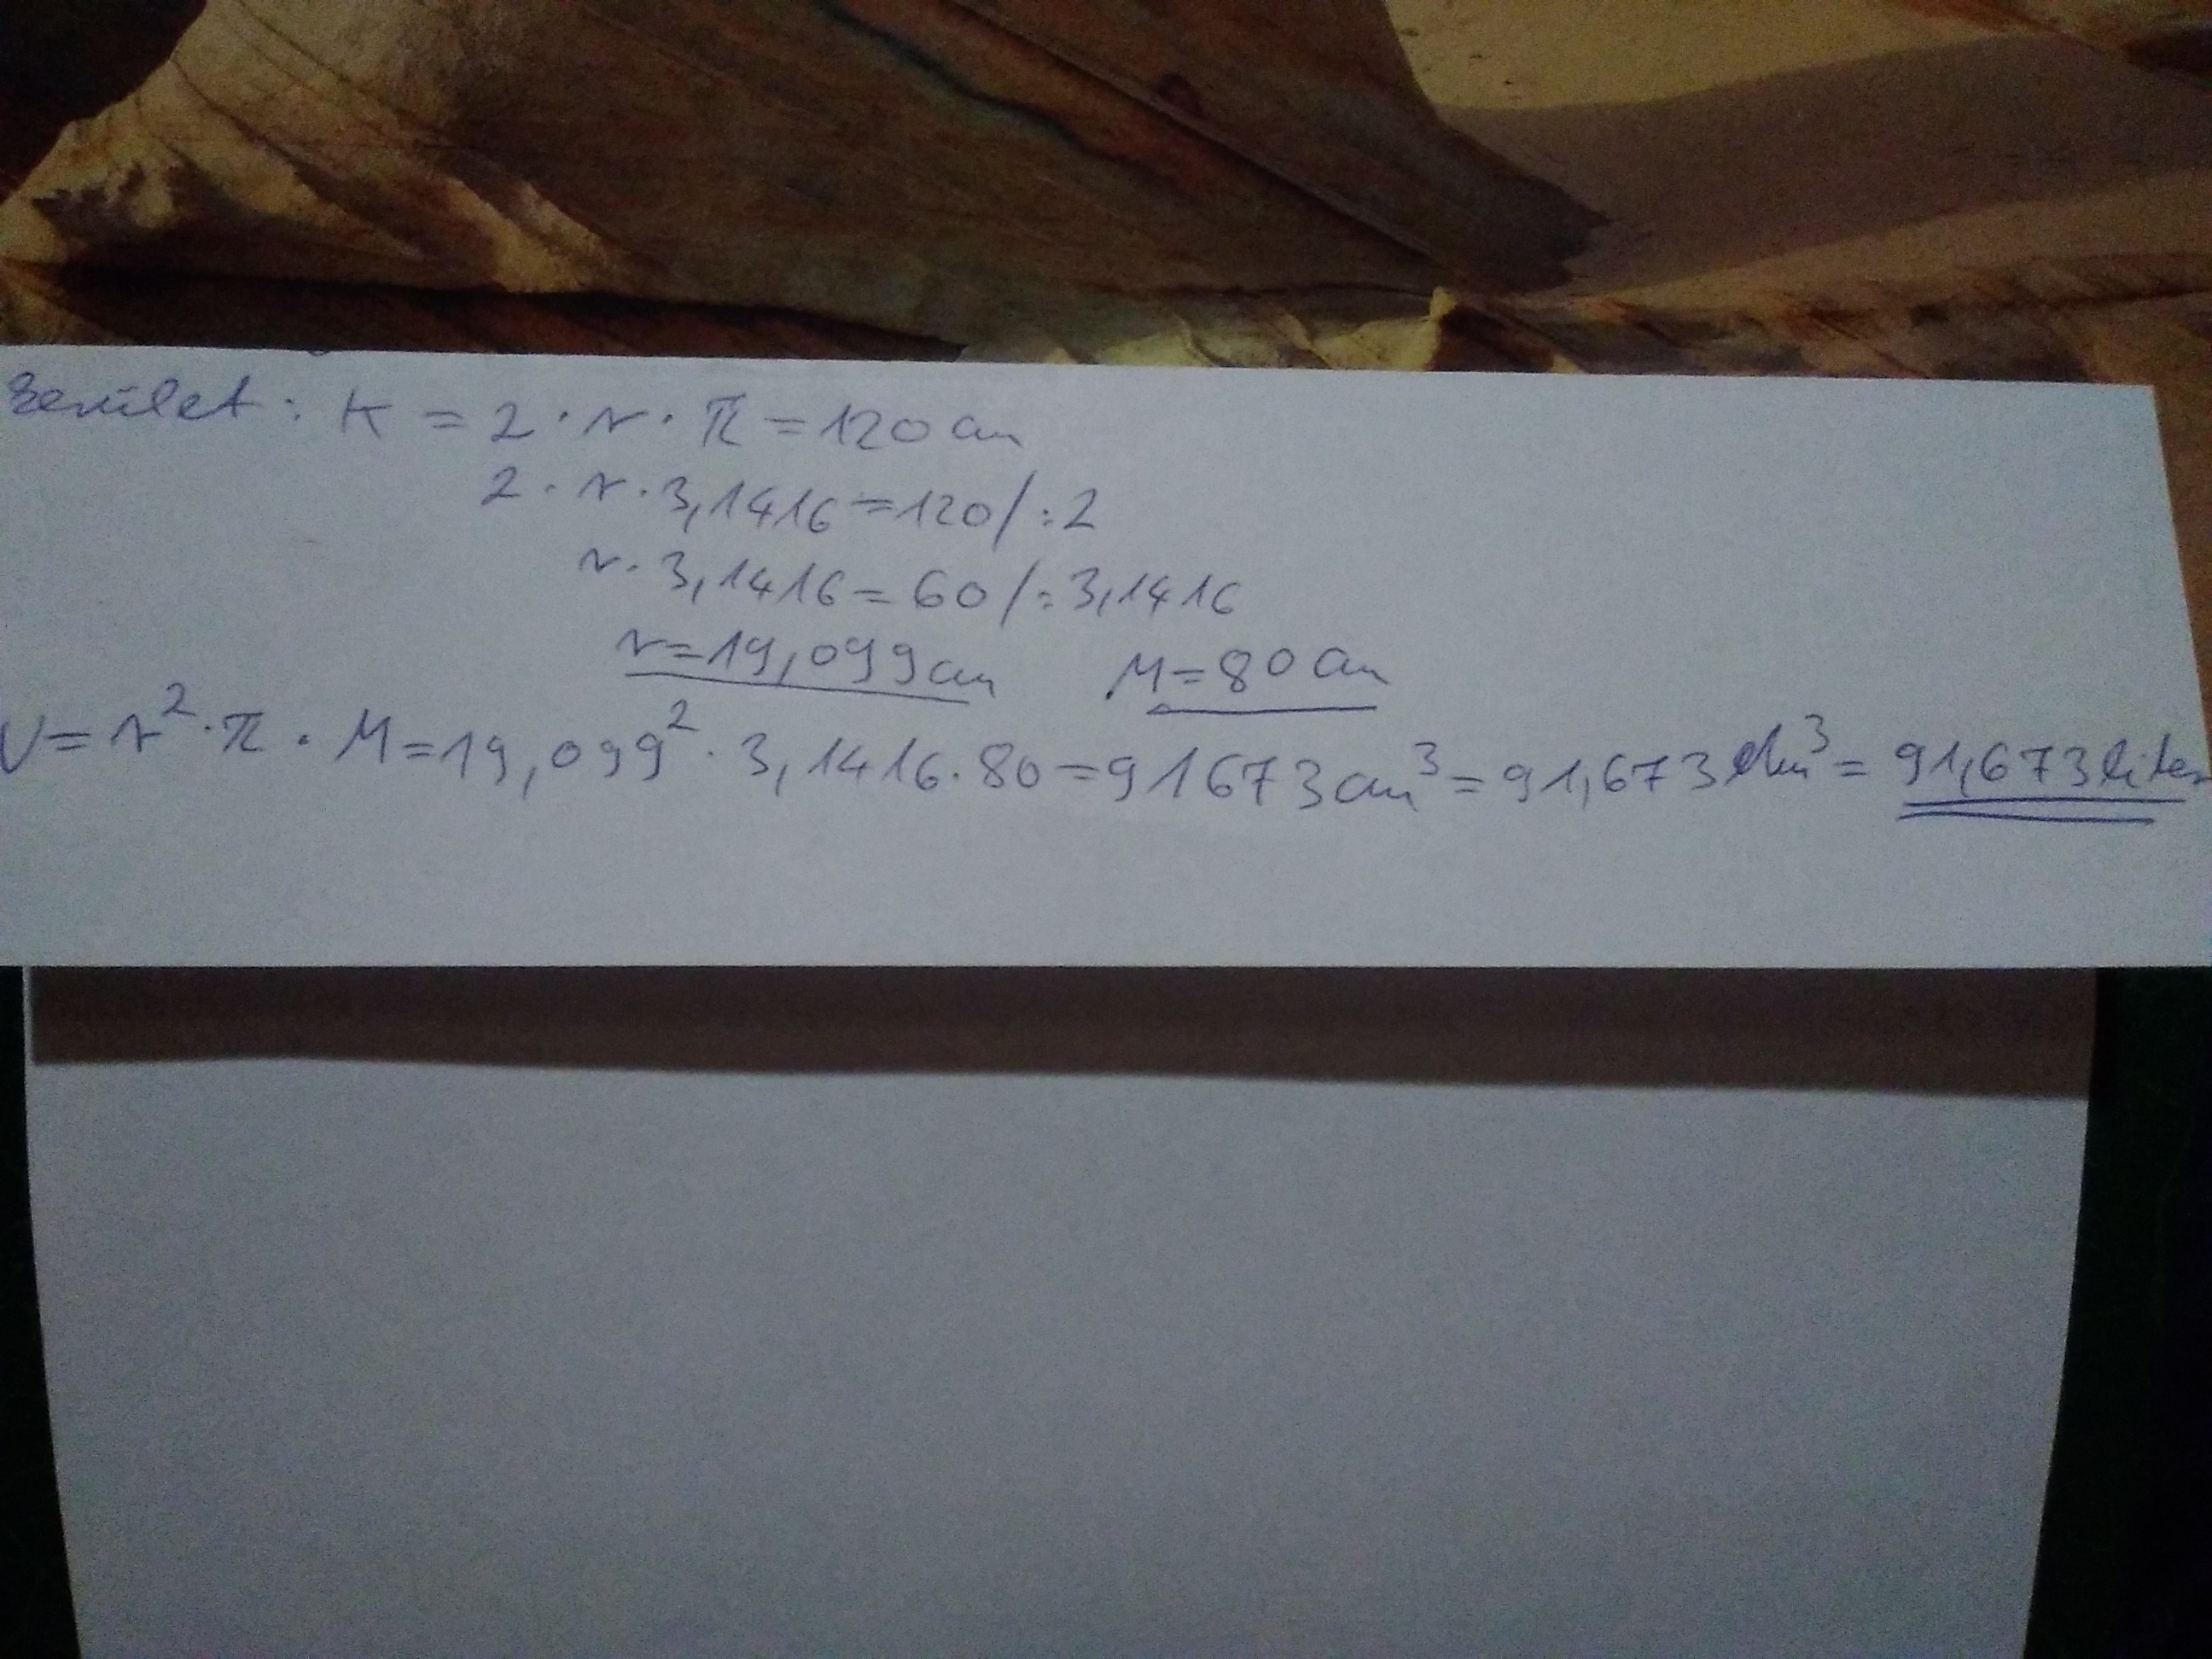 kerület: K = 2 · r · π = 120 cm
2 · r · 3,1416 = 120 / :2
r · 3,1416 = 60 / : 3,1416
r = 19,099 cm M = 80 cm
V = r² · π · M = 19,099² · 3,1416 · 80 = 91673 cm³ = 91,673 dm³ = 91,673 liter